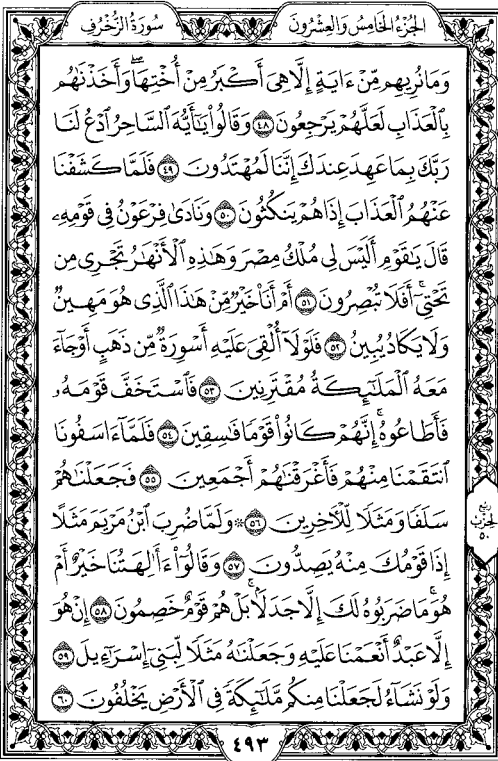 الجُزْءُ الخَامِسُ وَالعِشْرُونَ
سُورَةُ الزُّخْرُفِ
وَمَا نُرِيهِم مِّنْ ءَايَةٍ إِلَّا هِىَ أَكْبَرُ مِنْ أُخْتِهَا ۖ وَأَخَذْنَٰهُم
بِٱلْعَذَابِ لَعَلَّهُمْ يَرْجِعُونَ ٤٨ وَقَالُوا۟ يَٰٓأَيُّهَ ٱلسَّاحِرُ ٱدْعُ لَنَا
رَبَّكَ بِمَا عَهِدَ عِندَكَ إِنَّنَا لَمُهْتَدُونَ ٤٩ فَلَمَّا كَشَفْنَا
عَنْهُمُ ٱلْعَذَابَ إِذَا هُمْ يَنكُثُونَ ٥٠ وَنَادَىٰ فِرْعَوْنُ فِى قَوْمِهِۦ
قَالَ يَٰقَوْمِ أَلَيْسَ لِى مُلْكُ مِصْرَ وَهَٰذِهِ ٱلْأَنْهَٰرُ تَجْرِى مِن
تَحْتِىٓ ۖ أَفَلَا تُبْصِرُونَ ٥١ أَمْ أَنَا۠ خَيْرٌ مِّنْ هَٰذَا ٱلَّذِى هُوَ مَهِينٌ
وَلَا يَكَادُ يُبِينُ ٥٢ فَلَوْلَآ أُلْقِىَ عَلَيْهِ أَسْوِرَةٌ مِّن ذَهَبٍ أَوْ جَآءَ
مَعَهُ ٱلْمَلَٰٓئِكَةُ مُقْتَرِنِينَ ٥٣ فَٱسْتَخَفَّ قَوْمَهُۥ
فَأَطَاعُوهُ ۚ إِنَّهُمْ كَانُوا۟ قَوْمًا فَٰسِقِينَ ٥٤ فَلَمَّآ ءَاسَفُونَا
ٱنتَقَمْنَا مِنْهُمْ فَأَغْرَقْنَٰهُمْ أَجْمَعِينَ ٥٥ فَجَعَلْنَٰهُمْ
سَلَفًا وَمَثَلًا لِّلْءَاخِرِينَ ٥٦ ۞ وَلَمَّا ضُرِبَ ٱبْنُ مَرْيَمَ مَثَلًا
إِذَا قَوْمُكَ مِنْهُ يَصِدُّونَ ٥٧ وَقَالُوٓا۟ ءَأَٰلِهَتُنَا خَيْرٌ أَمْ
هُوَ ۚ مَا ضَرَبُوهُ لَكَ إِلَّا جَدَلًۢا ۚ بَلْ هُمْ قَوْمٌ خَصِمُونَ ٥٨ إِنْ هُوَ
إِلَّا عَبْدٌ أَنْعَمْنَا عَلَيْهِ وَجَعَلْنَٰهُ مَثَلًا لِّبَنِىٓ إِسْرَٰٓءِيلَ ٥٩
وَلَوْ نَشَآءُ لَجَعَلْنَا مِنكُم مَّلَٰٓئِكَةً فِى ٱلْأَرْضِ يَخْلُفُونَ ٦٠
ربع
الحزب
٥٠
٤٩٣